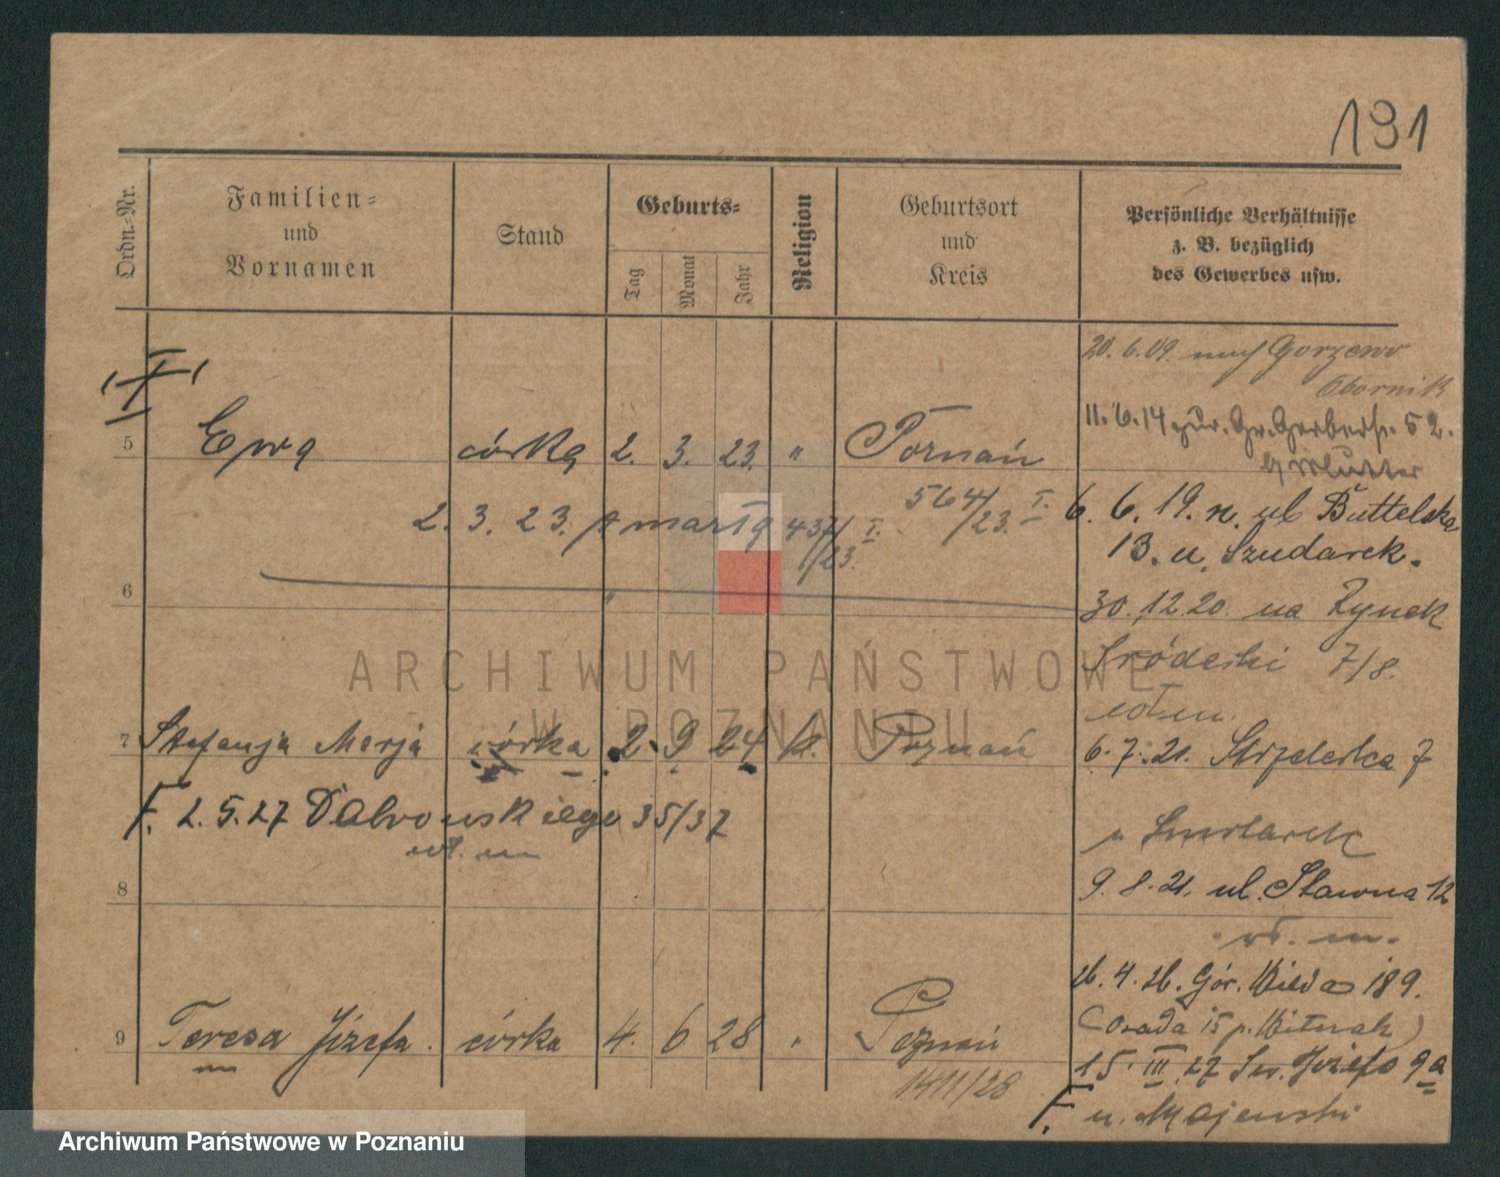 191
Ordn.-Nr.
Familien-
und
Vornamen
Stand
Geburts-
Tag
Monat
Jahr
Religion
Geburtsort
und
Kreis
Persönliche Verhältnisse
z. B. bezüglich
des Gewerbes usw.
20. 6. 09. nach Gorzewo
Obornik
11. 6. 14 zur. Gr. Gerberstr. 52.
b/ Mutter
5 Ewa córka 2. 3. 23. " Poznań
564/23. I.
2. 3. 23. zmarła 437/23. I.
6. 6. 19. n. ul Buttelska
13. u. Szudarek.
6
30. 12. 20. na Rynek
Śródecki 7/8.
wł. m.
7 Stefanja Marja córka 2. 9 24 k. Poznań
6. 7. 21. Strzelecka 7
F. 2. 5. 27 Dąbrowskiego 35/37
wł. m
u Smolarek
8
9. 8. 21. ul. Sławna 12
wł. m.
26. 4. 26. Gór. Wilda 189.
(Osada 15 p.
9 Teresa Józefa. córka 4. 6 28 " Poznań
1411/28
15. III. 27 Św. Józefa 9a
F. u. Majewski
ARCHIWUM PAŃSTWOWE
W POZNANIU
Archiwum Państwowe w Poznaniu